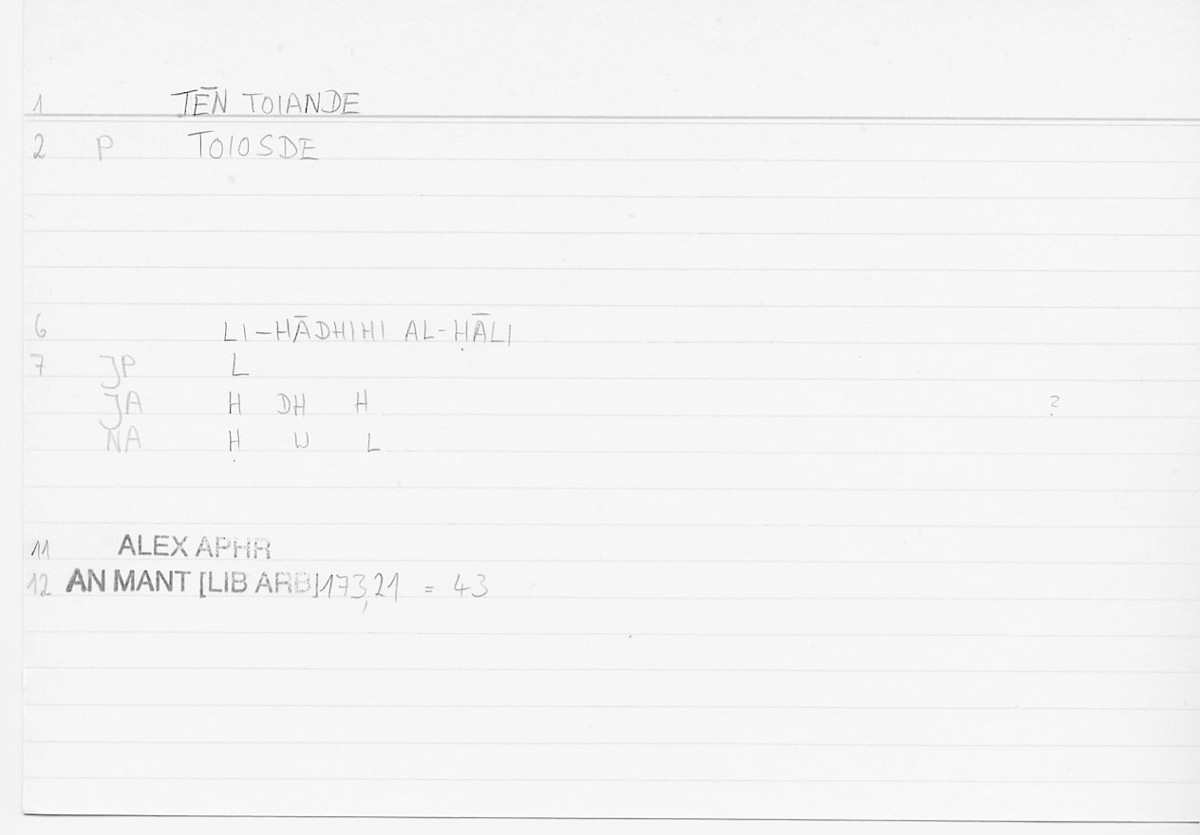 1 TĒN TOIANDE
2 P TOIOSDE
6 LI-HĀDHIHI AL-ḤĀLI
7 JP L
JA H DH H ?
NA Ḥ W L
11 ALEX APHR
12 AN MANT [LIB ARB] 173,21 = 43